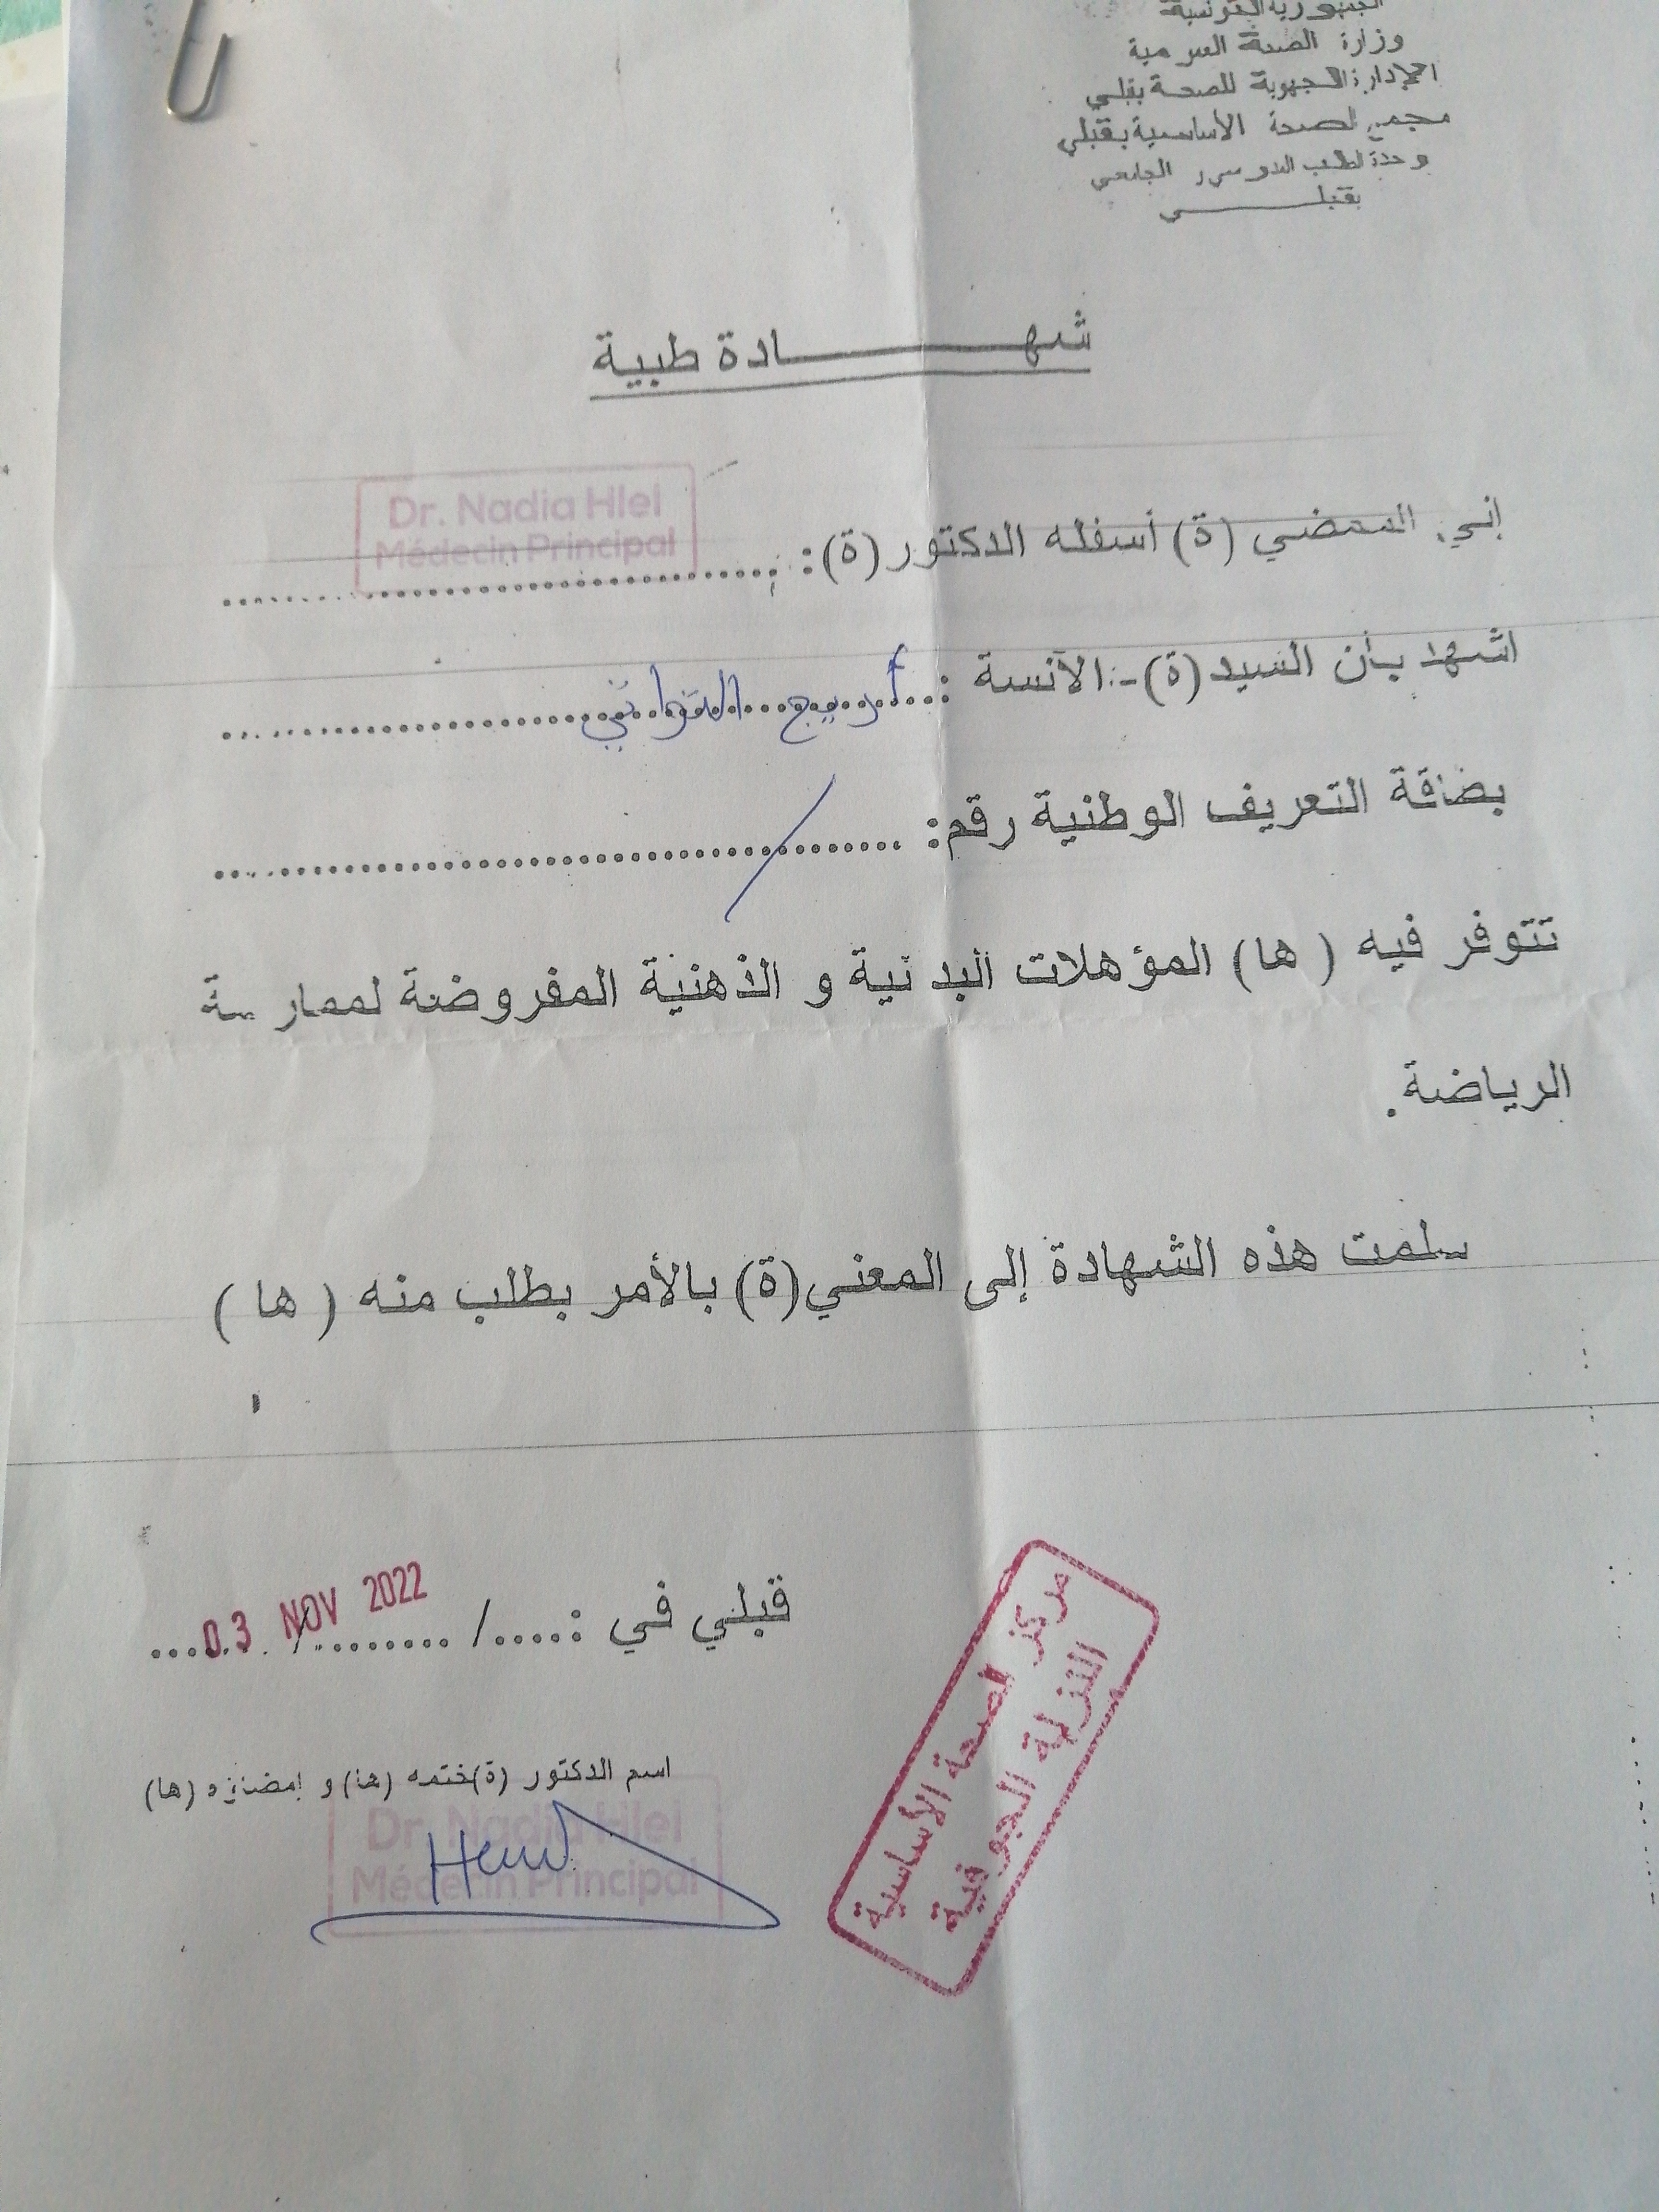 الجمهورية التونسية
وزارة الصحة العمومية
الإدارة الجهوية للصحة بقبلي
مجمع الصحة الأساسية بقبلي
وحدة الطب المدرسي الجامعي
بقبلـــــــي
شهـــــــــــادة طبية
إني الممضي (ة) أسفله الدكتور (ة): ........................................
Dr. Nadia Hlel
Médecin Principal
اشهد بأن السيد (ة) - الآنسة : أريج ........................................
بضاقة التعريف الوطنية رقم: ........................................
تتوفر فيه ( ها) المؤهلات البدنية و الذهنية المفروضة لممارسة
الرياضة.
سلمت هذه الشهادة إلى المعني (ة) بالأمر بطلب منه ( ها )
قبلي في : ...../ ........./........
03 NOV 2022
اسم الدكتور (ة)ختمه (ها) و إمضاؤه (ها)
Dr. Nadia Hlel
Médecin Principal
مركز الصحة الأساسية
النزلة الجوفية